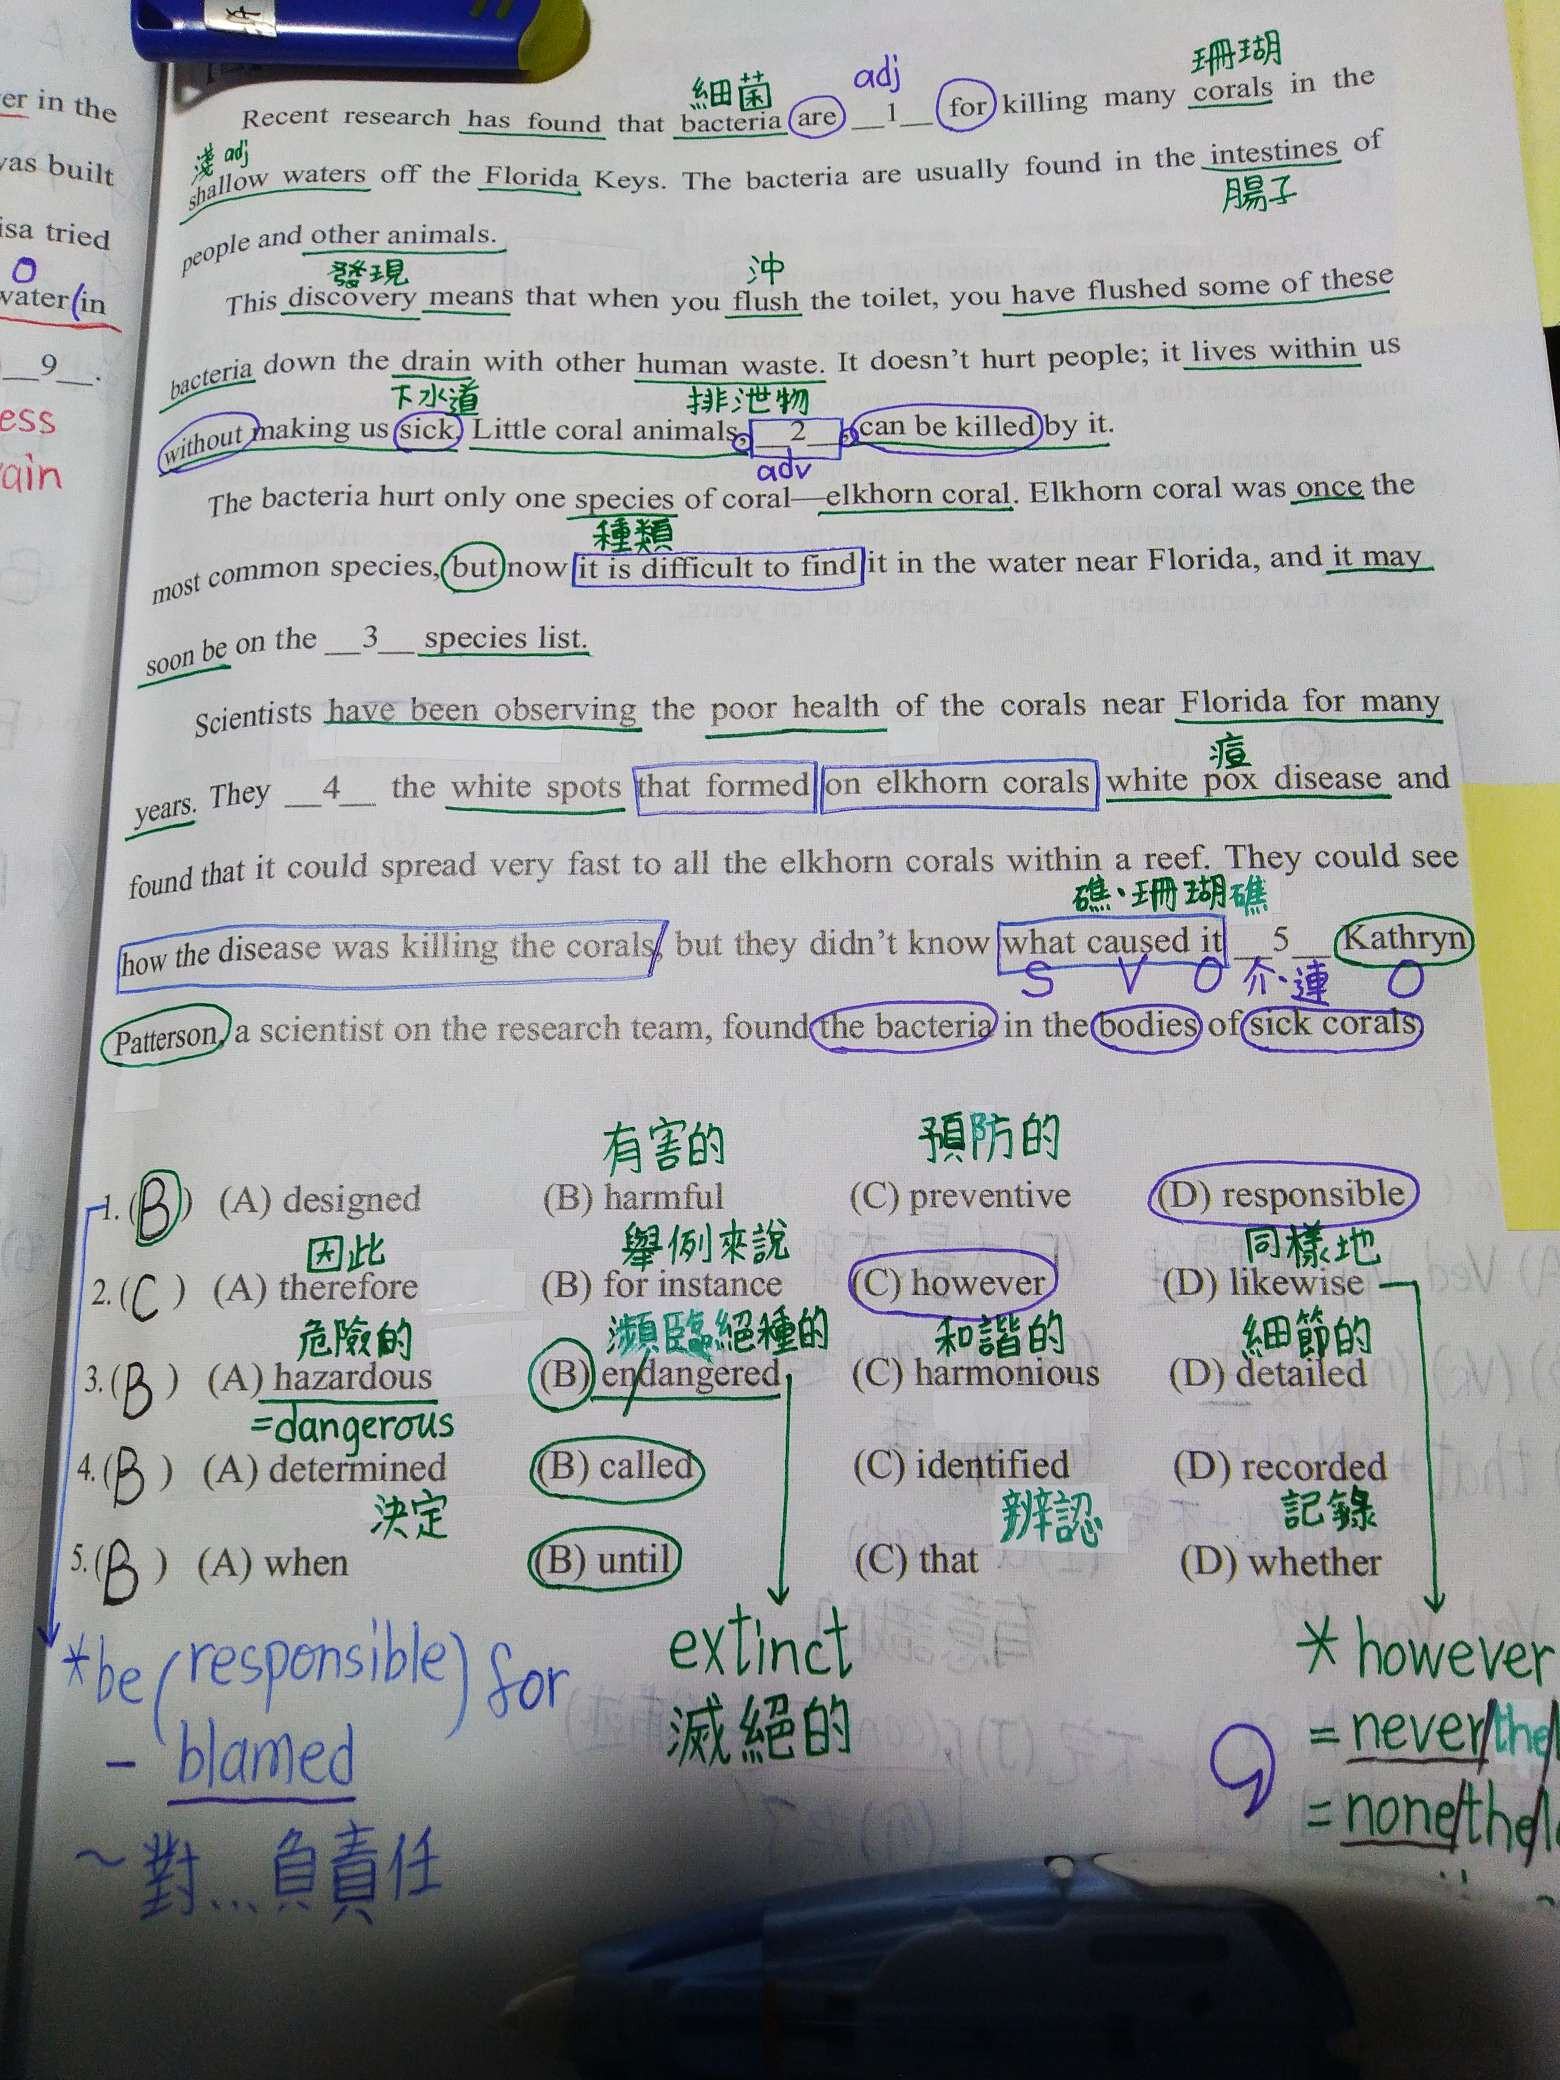 er in the
was built
isa tried
O
water (in
__9__.
ess
rain
細菌 adj 珊瑚
Recent research has found that bacteria are __1__ for killing many corals in the
淺 adj
shallow waters off the Florida Keys. The bacteria are usually found in the intestines of
腸子
people and other animals.
發現 沖
This discovery means that when you flush the toilet, you have flushed some of these
bacteria down the drain with other human waste. It doesn't hurt people; it lives within us
下水道 排泄物
without making us sick. Little coral animals, __2__, can be killed by it.
adv
The bacteria hurt only one species of coral—elkhorn coral. Elkhorn coral was once the
種類
most common species, but now it is difficult to find it in the water near Florida, and it may
soon be on the __3__ species list.
Scientists have been observing the poor health of the corals near Florida for many
痘
years. They __4__ the white spots that formed on elkhorn corals white pox disease and
found that it could spread very fast to all the elkhorn corals within a reef. They could see
礁、珊瑚礁
how the disease was killing the corals, but they didn't know what caused it __5__ Kathryn
S V O 介、連 O
Patterson, a scientist on the research team, found the bacteria in the bodies of sick corals
有害的 預防的
1. (B) (A) designed (B) harmful (C) preventive (D) responsible
因此 舉例來說 同樣地
2. (C) (A) therefore (B) for instance (C) however (D) likewise
危險的 瀕臨絕種的 和諧的 細節的
3. (B) (A) hazardous (B) endangered (C) harmonious (D) detailed
=dangerous
4. (B) (A) determined (B) called (C) identified (D) recorded
決定 辨認 記錄
5. (B) (A) when (B) until (C) that (D) whether
*be (responsible) for
- blamed
~對...負責任
extinct
滅絕的
* however
= never/the
= none/the/